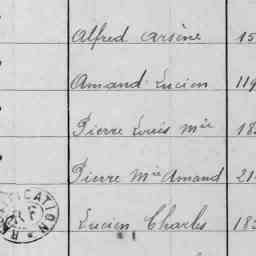 Alfred Arsène 15
Amand Lucien 119
Pierre Louis Mie 18
Pierre Mie Amand 21
Lucien Charles 183
RATIFICATION
RF